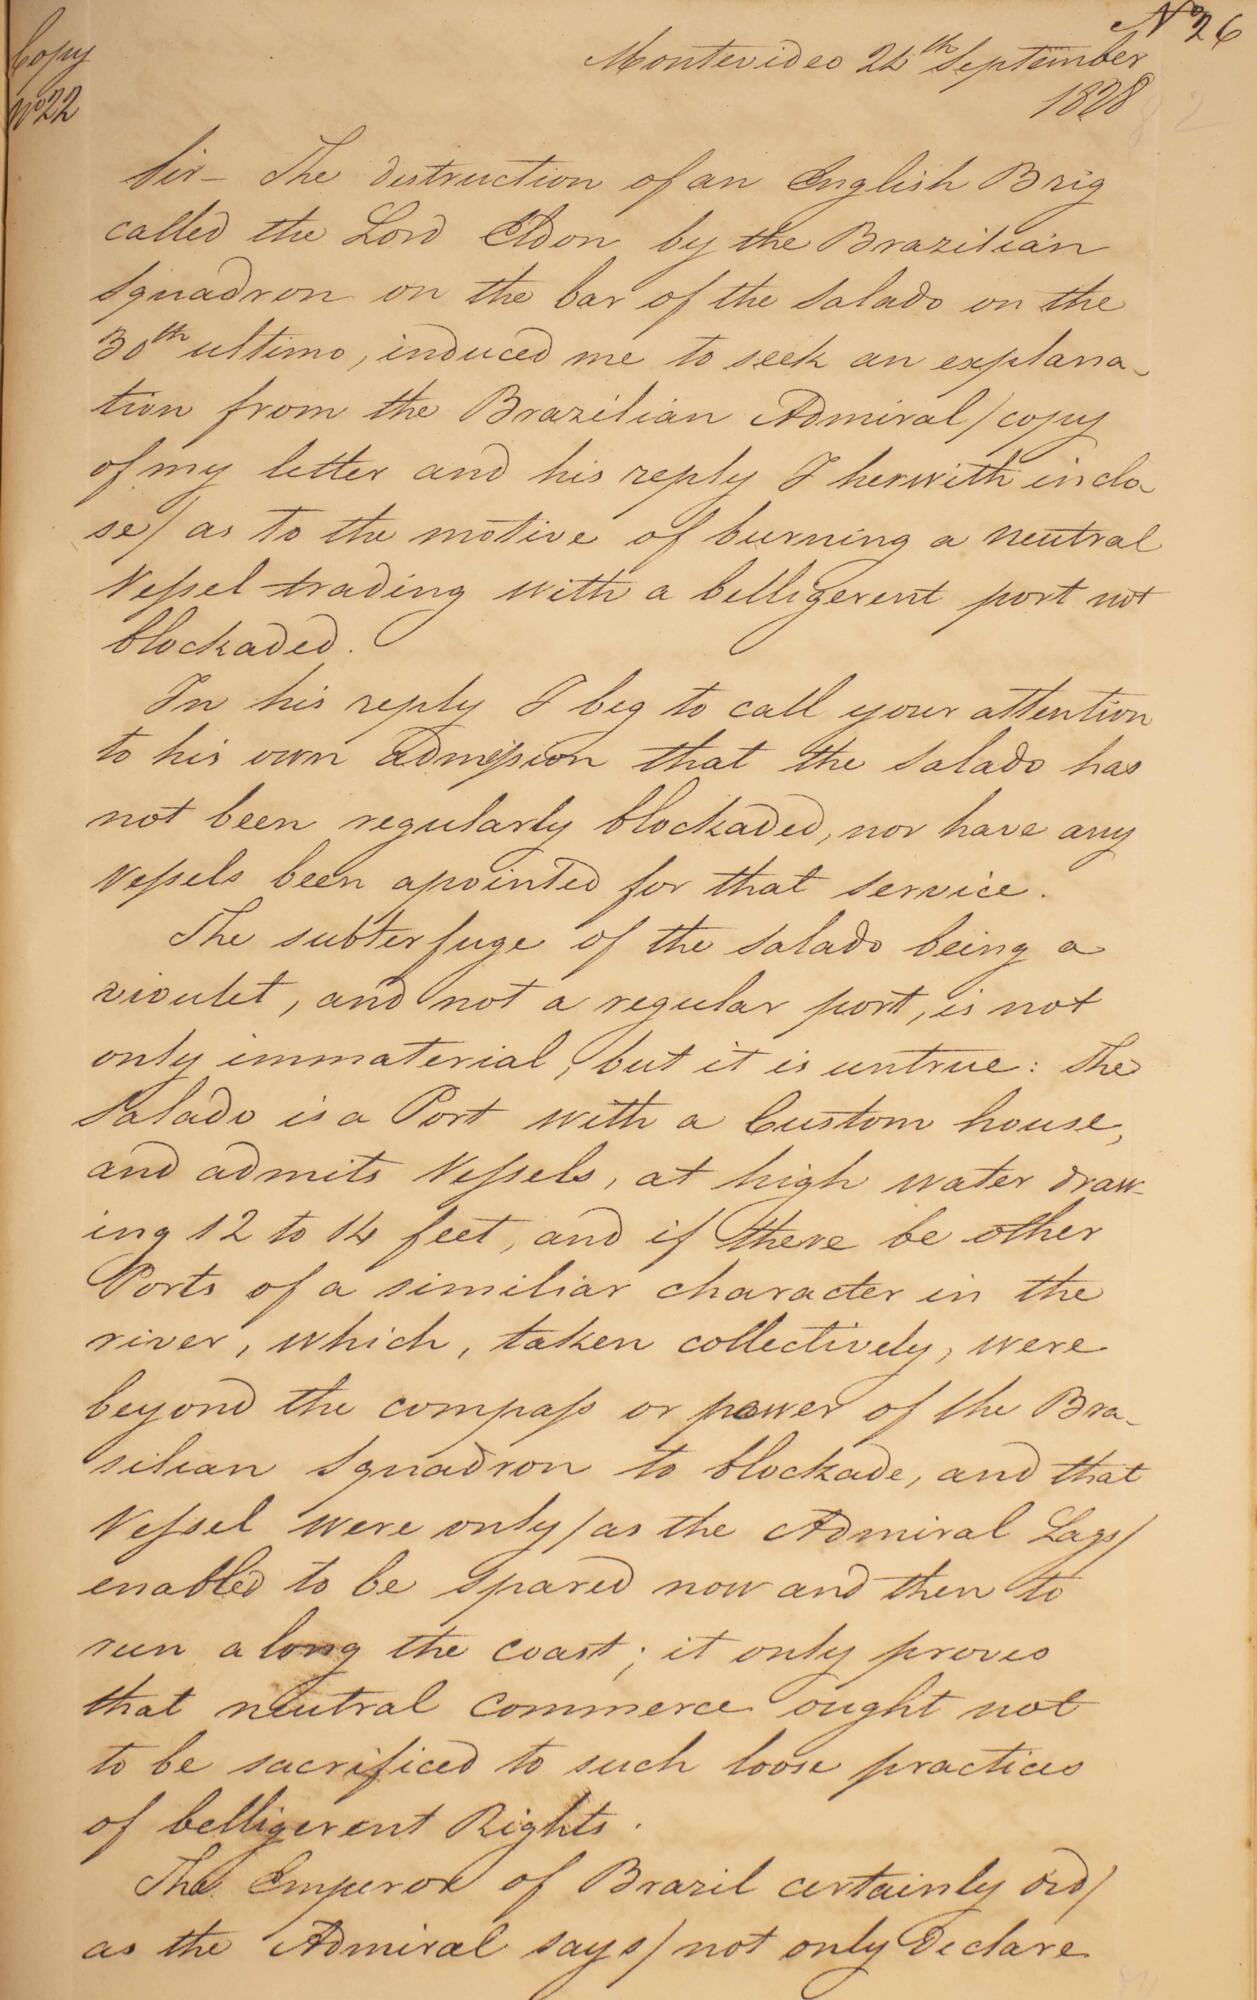 No 26
Copy
No 22
Montevideo 24th September
1828
Sir - The destruction of an English Brig
called the Lord Eldon by the Brazilian
Squadron on the bar of the Salado on the
30th ultimo, induced me to seek an explana-
tion from the Brazilian Admiral / copy
of my letter and his reply I herwith inclo-
se / as to the motive of burning a neutral
Vessel trading with a belligerent port not
blockaded.
In his reply I beg to call your attention
to his own admission that the Salado has
not been regularly blockaded, nor have any
Vessels been apointed for that service.
The subterfuge of the Salado being a
rivulet, and not a regular port, is not
only immaterial, but it is untrue: The
Salado is a Port with a Custom house,
and admits Vessels, at high water draw-
ing 12 to 14 feet, and if there be other
Ports of a similiar character in the
river, which, taken collectively, were
beyond the compass or power of the Bra-
silian Squadron to blockade, and that
Vessel were only / as the Admiral Says /
enabled to be spared now and then to
run along the coast; it only proves
that neutral commerce ought not
to be sacrificed to such loose practices
of belligerent Rights.
The Emperor of Brazil certainly did /
as the Admiral says / not only Declare